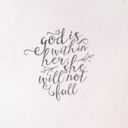 god is
within
her, she
will not
fall